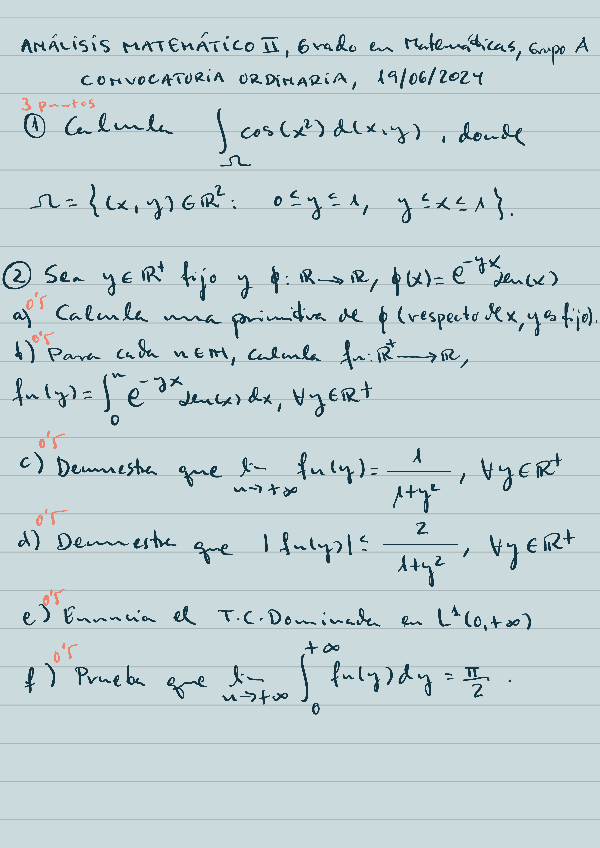 ANÁLISIS MATEMÁTICO II, Grado en Matemáticas, Grupo A
CONVOCATORIA ORDINARIA, 19/06/2024
3 puntos
① Calcula ∫_Ω cos(x²) d(x,y), donde
Ω = {(x,y) ∈ ℝ² : 0 ≤ y ≤ 1, y ≤ x ≤ 1}.
② Sea y ∈ ℝ⁺ fijo y ϕ: ℝ → ℝ, ϕ(x) = e^{-yx} sen(x)
0'5
a) Calcula una primitiva de ϕ (respecto de x, y es fijo).
0'5
b) Para cada n ∈ ℕ, calcula fn: ℝ⁺ → ℝ,
fn(y) = ∫_0^n e^{-yx} sen(x) dx, ∀y ∈ ℝ⁺
0'5
c) Demuestra que lim_{n→+∞} fn(y) = 1/(1+y²), ∀y ∈ ℝ⁺
0'5
d) Demuestra que |fn(y)| ≤ 2/(1+y²), ∀y ∈ ℝ⁺
0'5
e) Enuncia el T.C.Dominada en L¹(0,+∞)
0'5
f) Prueba que lim_{n→+∞} ∫_0^{+∞} fn(y) dy = π/2.